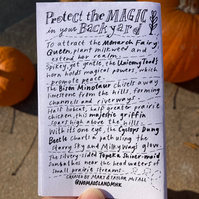 Protect the MAGIC
in your Backyard
To attract the Monarch Fairy
Queen, plant milkweed and
extend her realm.
Spikey, yet gentle, the Unicorny Toad's
horn holds magical powers, and
promotes peace.
The Bison Minotaur chisels away
limestone from the hills, forming
channels and riverways.
Half bobcat, half greater prairie
chicken, this majestic griffin
soars high above the hills.
With its one eye, the Cyclops Dung
Beetle charts a path using the
starry sky and Milky Way's glow.
The silvery-sided Topeka Shiner-maid
lives near the head waters of
small prairie streams.
Created by Mari & Taylor
@NOMADSLANDMHK